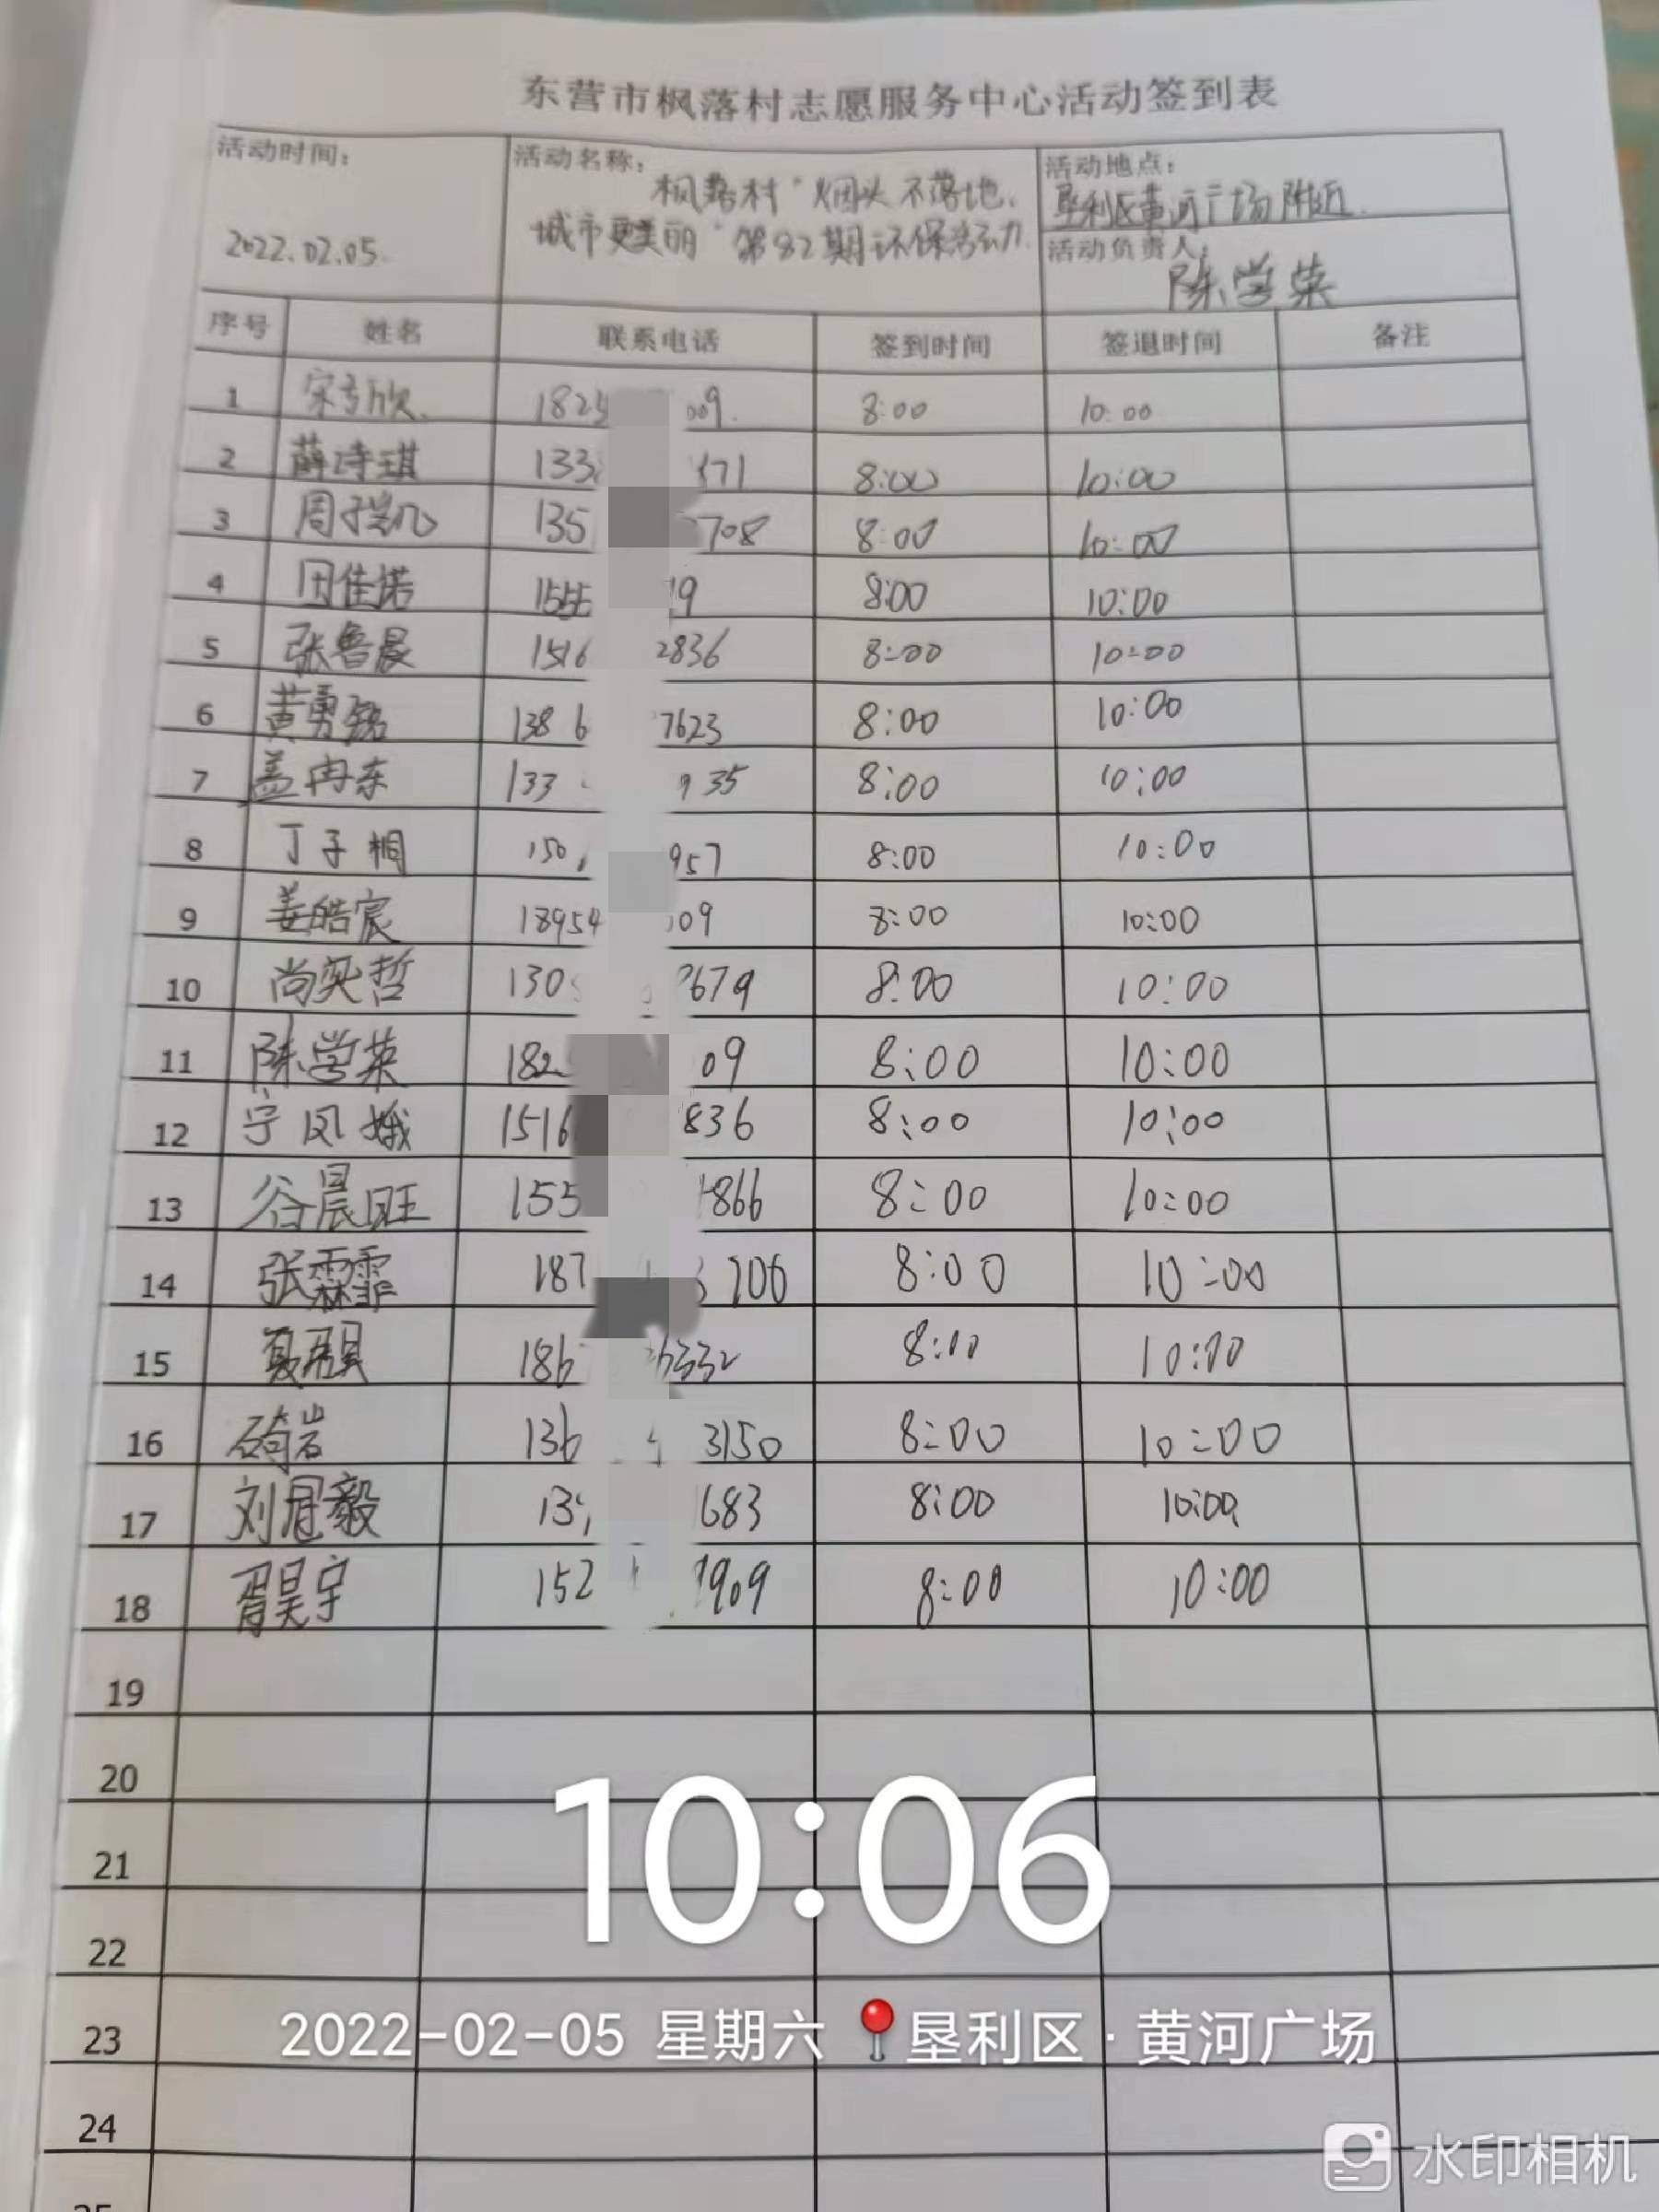 东营市枫落村志愿服务中心活动签到表
活动时间：
2022.02.05.
活动名称：
枫落村"烟头不落地，
城市更美丽"第82期环保活动
活动地点：
垦利区黄河广场附近.
活动负责人：
陈学荣
序号 姓名 联系电话 签到时间 签退时间 备注
1 1825 009. 8:00 10:00
2 薛诗琪 133 171 8:00 10:00
3 135 708 8:00 10:00
4 田佳诺 155 19 8:00 10:00
5 张鲁晨 1516 2836 8:00 10:00
6 黄勇铭 138 6 7623 8:00 10:00
7 孟冉东 133 935 8:00 10:00
8 丁子桐 150 957 8:00 10:00
9 姜皓宸 18954 09 8:00 10:00
10 尚奕哲 130 679 8:00 10:00
11 陈学荣 182 09 8:00 10:00
12 宁凤娥 1516 836 8:00 10:00
13 谷晨旺 155 866 8:00 10:00
14 张霖霏 187 706 8:00 10:00
15 186 6332 8:00 10:00
16 136 3150 8:00 10:00
17 刘冠毅 13 683 8:00 10:00
18 胥昊宇 152 909 8:00 10:00
19
20
21
22
23
24
25
10:06
2022-02-05 星期六 垦利区·黄河广场
水印相机